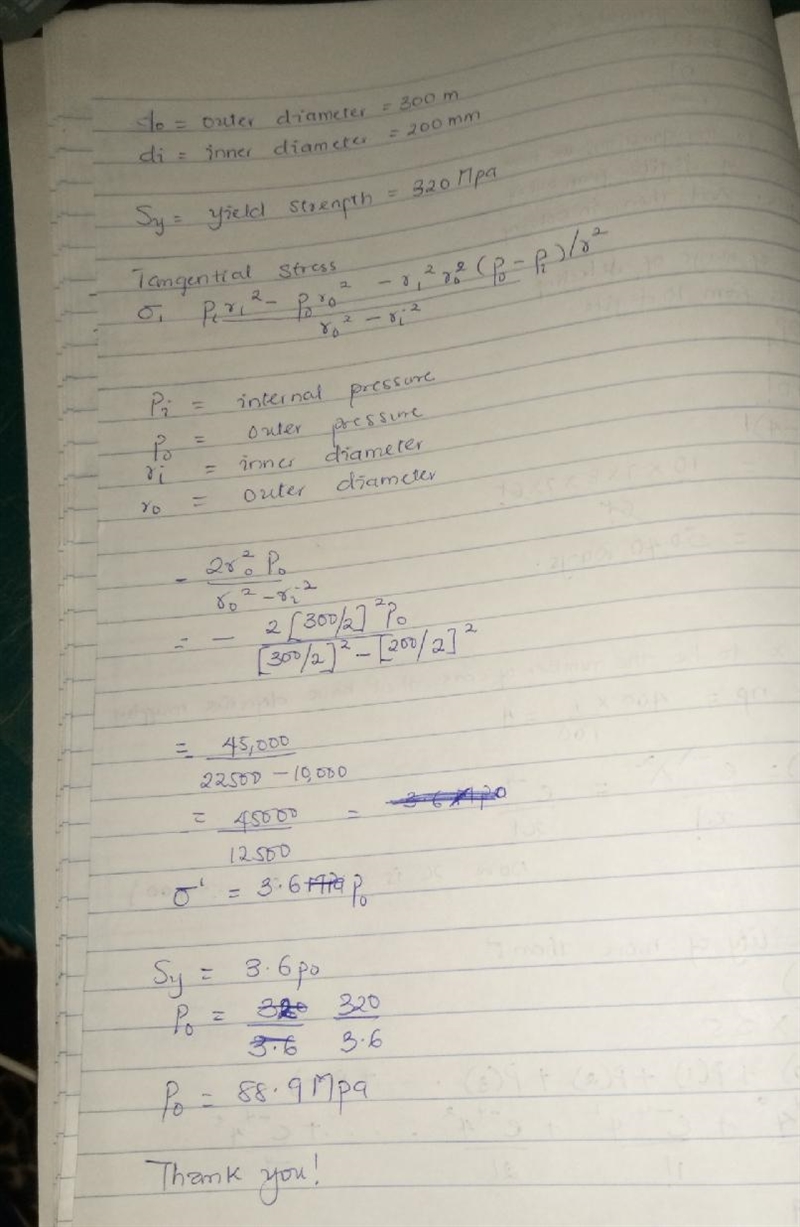 do = outer diameter = 300 m
di = inner diameter = 200 mm
Sy = yield strength = 320 Mpa
Tangential Stress
σ₁ Pᵢrᵢ² - P₀r₀² - rᵢ² r₀² (P₀ - Pᵢ)/r²
r₀² - rᵢ²
Pᵢ = internal pressure
P₀ = outer pressure
rᵢ = inner diameter
r₀ = outer diameter
- 2r₀² P₀
r₀² - rᵢ²
= - 2[300/2]² P₀
[300/2]² - [200/2]²
= 45,000
22500 - 10,000
= 45000 =
12500
σ' = 3.6 P₀
Sy = 3.6 po
P₀ = 320 320
3.6 3.6
P₀ = 88.9 Mpa
Thank you!